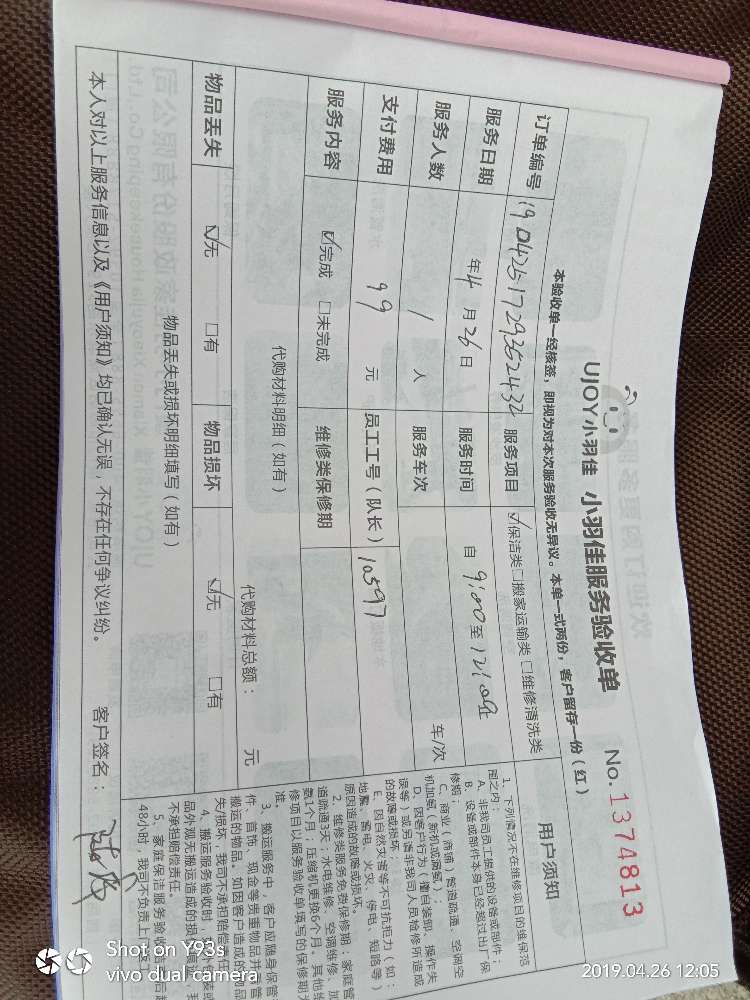 UJOY小羽佳 小羽佳服务验收单 No.1374813
本验收单一经核签，即视为对本次服务验收无异议。本单一式两份，客户留存一份（红）
订单编号 1904251729352432 服务项目 ☑保洁类□搬家运输类□维修清洗类
服务日期 年4月26日 服务时间 自9:00至12:00止
服务人数 1 人 服务车次 车/次
支付费用 99 元 员工工号（队长） 10597
服务内容 ☑完成 □未完成 维修类保修期
代购材料明细（如有） 代购材料总额： 元
物品丢失 ☑无 □有 物品损坏 ☑无 □有
物品丢失或损坏明细填写（如有）
本人对以上服务信息以及《用户须知》均已确认无误，不存在任何争议纠纷。 客户签名：
用户须知
1、下列情况不在维修项目的维保范
围之内：
A、非我司员工提供的设备或部件；
B、设备或部件本身已经超过出厂保
修期；
C、商业（商铺）管道疏通、空调空
机加氨（新机或漏氨）；
D、因客户行为（擅自装卸、操作失
误等）或另请非我司人员检修所造成
的故障或损坏；
E、因自然灾害等不可抗拒力（如：
地震、雷电、火灾、停电、短路等）
原因造成的故障或损坏。
2、维修类服务免费保修期：家庭管
道疏通3天；水电维修、空调维修、加
氨1个月；压缩机更换6个月。其他维
修项目以服务验收单填写的保修期为
准。
3、搬运服务中，客户应随身保管
件、首饰、现金等贵重物品并自管
搬运的物品。如因客户造成的物品
失/损坏，我司不承担赔偿责任
4、搬运服务验收时，
品外观无搬运造成的损
不承担赔偿责任。
5、家庭保洁服务验收
48小时，我司不负责上
Shot on Y93s
vivo dual camera
2019.04.26 12:05